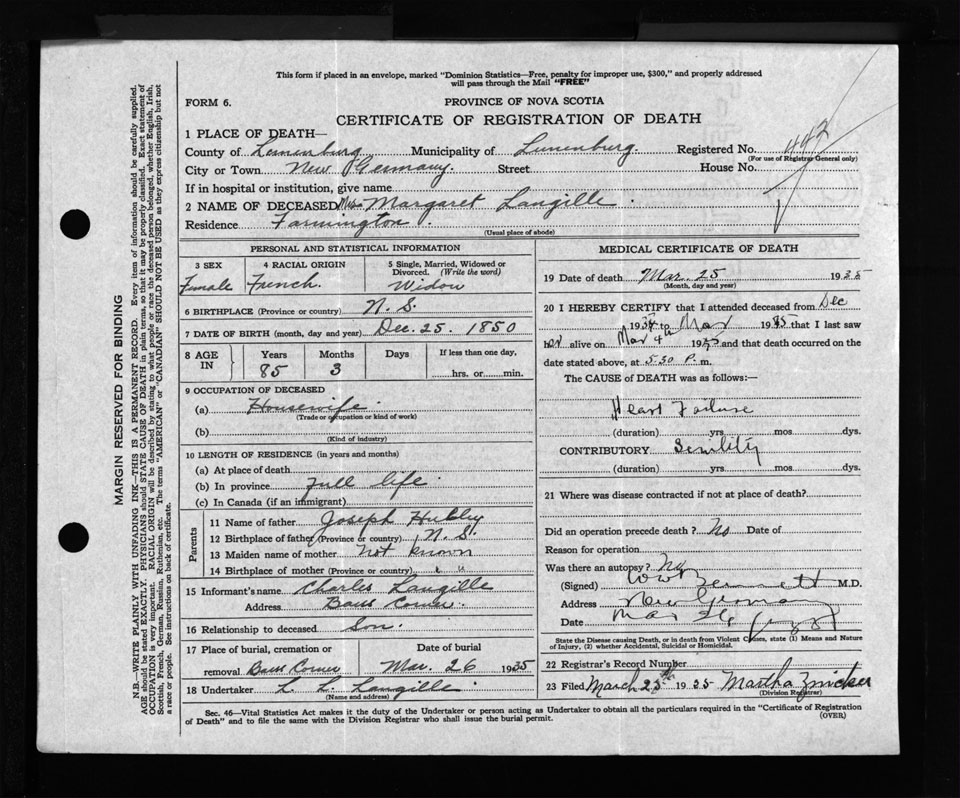 This form if placed in an envelope, marked "Dominion Statistics—Free, penalty for improper use, $300," and properly addressed
will pass through the Mail "FREE"
FORM 6.
PROVINCE OF NOVA SCOTIA
CERTIFICATE OF REGISTRATION OF DEATH
442
1 PLACE OF DEATH—
County of Lunenburg Municipality of Lunenburg. Registered No.
(For use of Registrar General only)
City or Town New Germany. Street House No.
If in hospital or institution, give name
2 NAME OF DECEASED Mrs. Margaret Langille.
Residence Farmington.
(Usual place of abode)
PERSONAL AND STATISTICAL INFORMATION
3 SEX 4 RACIAL ORIGIN 5 Single, Married, Widowed or Divorced. (Write the word)
Female French. Widow
6 BIRTHPLACE (Province or country) N. S.
7 DATE OF BIRTH (month, day and year) Dec. 25. 1850
8 AGE IN Years Months Days If less than one day,
85 3 hrs. or min.
9 OCCUPATION OF DECEASED
(a) Housewife.
(Trade or occupation or kind of work)
(b)
(Kind of industry)
10 LENGTH OF RESIDENCE (in years and months)
(a) At place of death
(b) In province full life.
(c) In Canada (if an immigrant)
Parents
11 Name of father Joseph Hubley
12 Birthplace of father (Province or country) N. S.
13 Maiden name of mother not known
14 Birthplace of mother (Province or country) " "
15 Informant's name Charles Langille
Address Barss Corner.
16 Relationship to deceased Son.
17 Place of burial, cremation or Date of burial
removal Barss Corner Mar. 26 1935
18 Undertaker L. L. Langille.
(Name and address)
MEDICAL CERTIFICATE OF DEATH
19 Date of death Mar. 25 1935
(Month, day and year)
20 I HEREBY CERTIFY that I attended deceased from Dec
1934 to Mar 1935 that I last saw
her alive on Mar 4th 1935 and that death occurred on the
date stated above, at 5.30 P. m.
The CAUSE of DEATH was as follows:—
Heart Failure
(duration) yrs. mos. dys.
CONTRIBUTORY Senility
(duration) yrs. mos. dys.
21 Where was disease contracted if not at place of death?
Did an operation precede death? No Date of
Reason for operation
Was there an autopsy? No
(Signed) Bennett M.D.
Address New Germany
Date Mar
State the Disease causing Death, or in death from Violent Causes, state (1) Means and Nature
of Injury, (2) whether Accidental, Suicidal or Homicidal.
22 Registrar's Record Number
23 Filed March 25th 1935 Martha Zwicker
(Division Registrar)
Sec. 46—Vital Statistics Act makes it the duty of the Undertaker or person acting as Undertaker to obtain all the particulars required in the "Certificate of Registration
of Death" and to file the same with the Division Registrar who shall issue the burial permit. (OVER)
MARGIN RESERVED FOR BINDING
N.B.—WRITE PLAINLY WITH UNFADING INK—THIS IS A PERMANENT RECORD. Every item of information should be carefully supplied.
AGE should be stated EXACTLY. PHYSICIANS should STATE CAUSE OF DEATH in plain terms, so that it may be properly classified. Exact statement of
OCCUPATION is very important. RACIAL ORIGIN will be described by stating to what people or race the deceased person belonged, whether English, Irish,
Scottish, French, German, Russian, Ruthenian, etc. The terms "AMERICAN" or "CANADIAN" SHOULD NOT BE USED as they express citizenship but not
a race or people. See instructions on back of certificate.